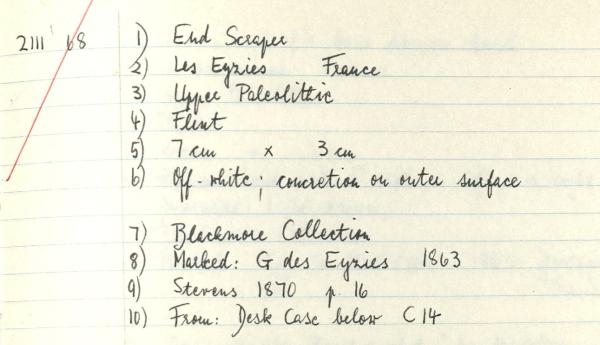 2111 68 1) End Scraper
2) Les Eyzies France
3) Upper Paleolithic
4) Flint
5) 7 cm x 3 cm
6) Off-white; concretion on outer surface
7) Blackmore Collection
8) Marked: G des Eyzies 1863
9) Stevens 1870 p. 16
10) From: Desk Case below C 14